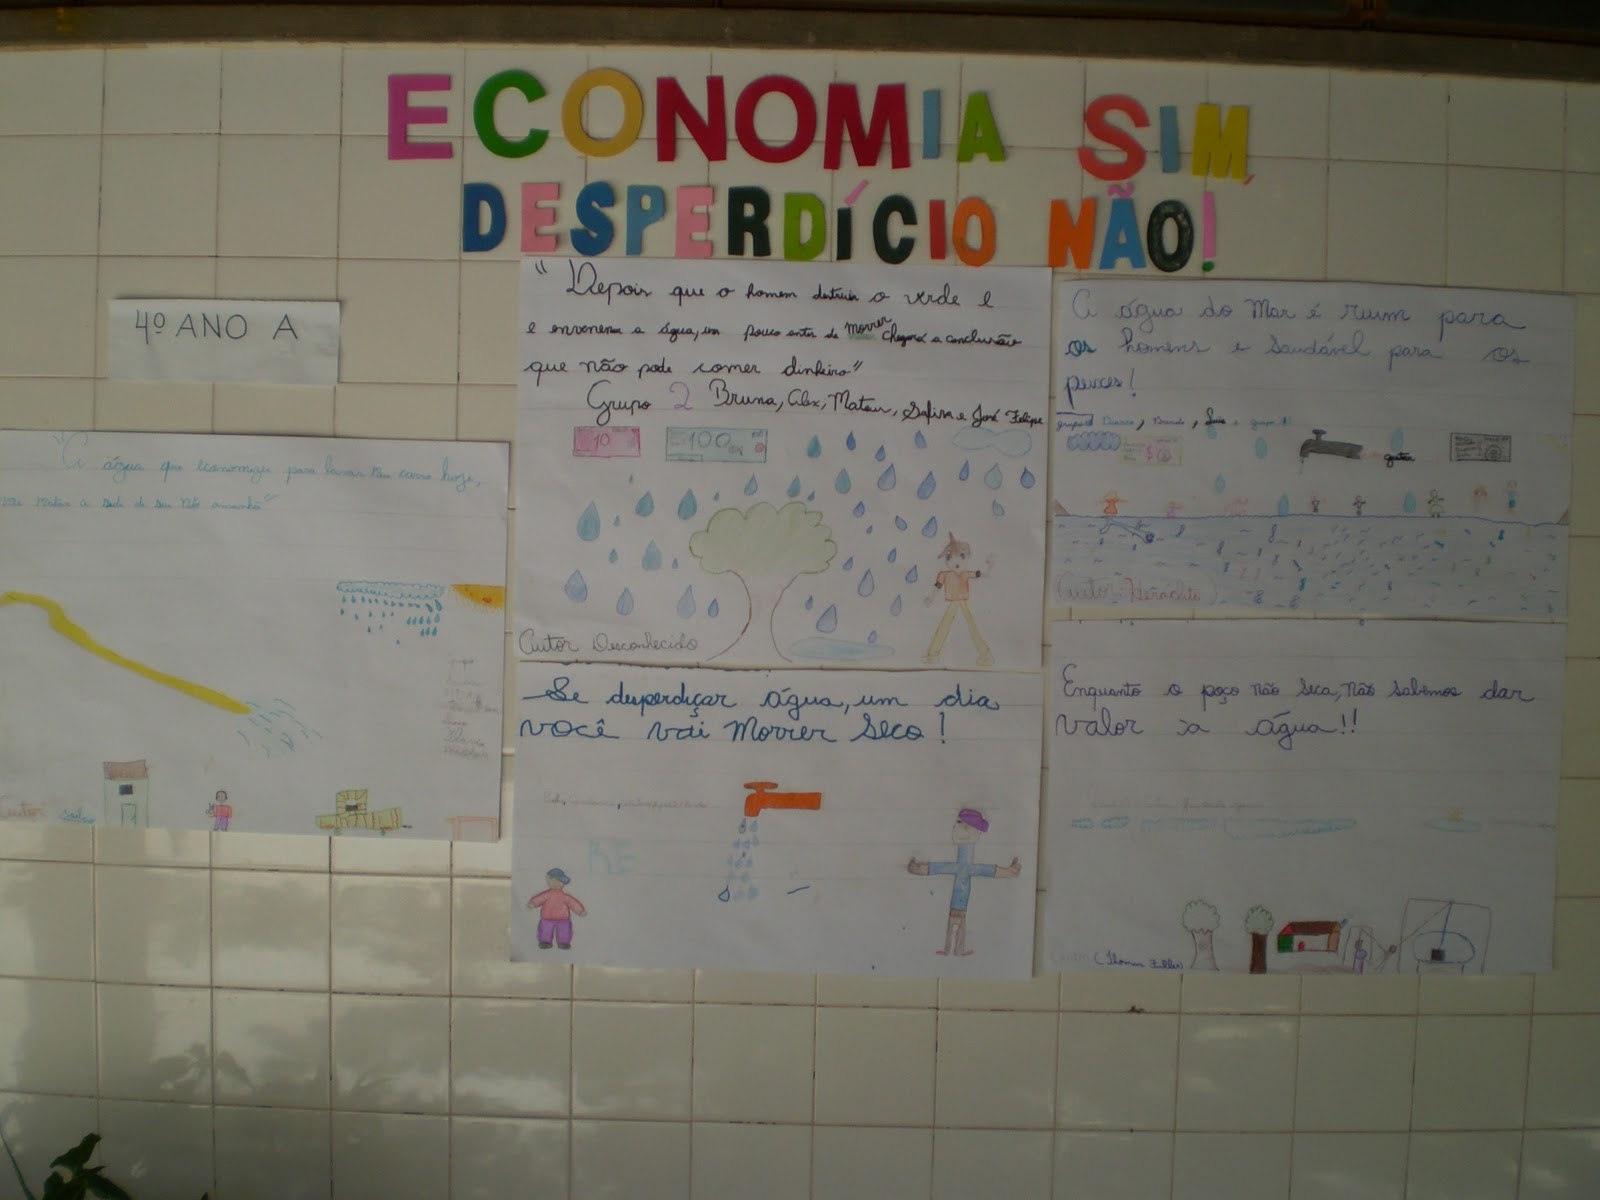 ECONOMIA SIM,
DESPERDÍCIO NÃO!
4º ANO A
"A água que economizas para lavar teu carro hoje,
vai matar a sede de seu neto amanhã"
Autor
"Depois que o homem destruir o verde e
e envenenar a água, um pouco antes de morrer chegará a conclusão
que não pode comer dinheiro"
Grupo 2 Bruna, Alex, Mateus, Safira e José Felipe
10
100
Autor Desconhecido
A água do Mar é ruim para
os homens e saudável para os
peixes!
(Autor: Heráclito)
Se desperdiçar água, um dia
você vai Morrer Seco!
Enquanto o poço não seca, não sabemos dar
valor à água!!
(Thomas Fuller)